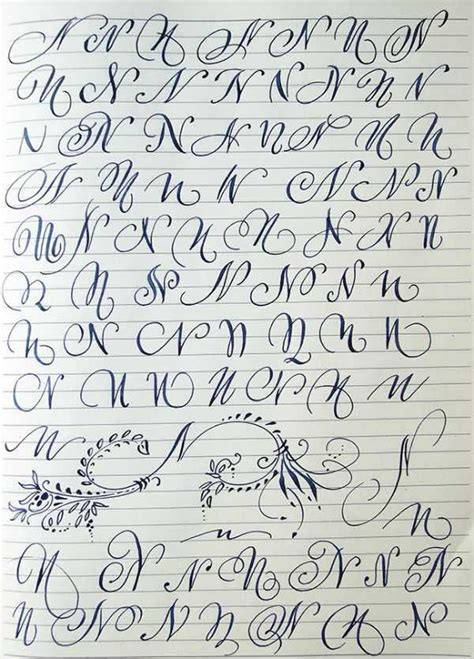 N N N N N N N
N N N N N N N N
N N N N N N N N
N N N N N N N
N N N N N N N N
N N N N N N N
N N N N N N N
N N N N N N N
N N N
n n
N N N N N N N
N N N N N N N N